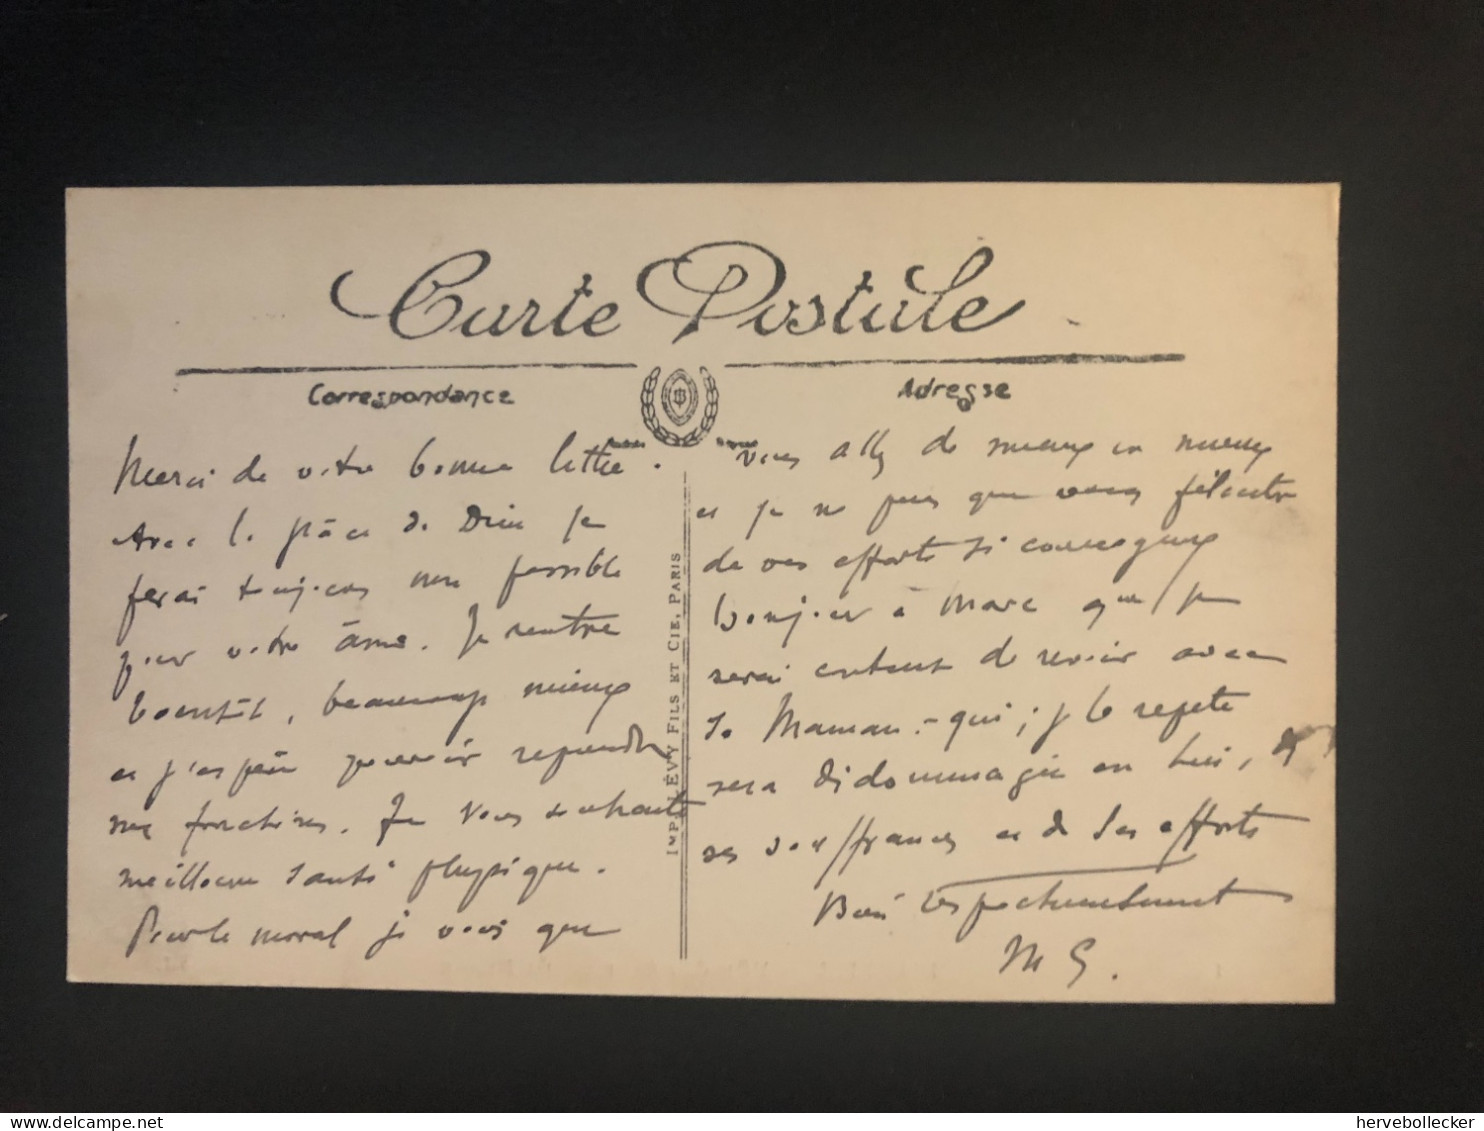 Carte Postale
Correspondance
Adresse
Merci de votre bonne lettre.
Avec la grâce de Dieu je
ferai toujours mon possible
pour votre âme. Je rentre
bientôt, beaucoup mieux
et j'espère pouvoir reprendre
mes fonctions. Je vous souhaite
meilleure santé physique.
Pour le moral je vois que
IMP. LÉVY FILS ET CIE, PARIS
vous allez de mieux en mieux
et je ne puis que vous féliciter
de vos efforts si courageux
bonjour à Marc que je
serai content de revoir avec
sa Maman - qui, je le répète
sera dédommagée en lui, de
ses souffrances et de ses efforts
Bien respectueusement
M G.
delcampe.net
hervebollecker